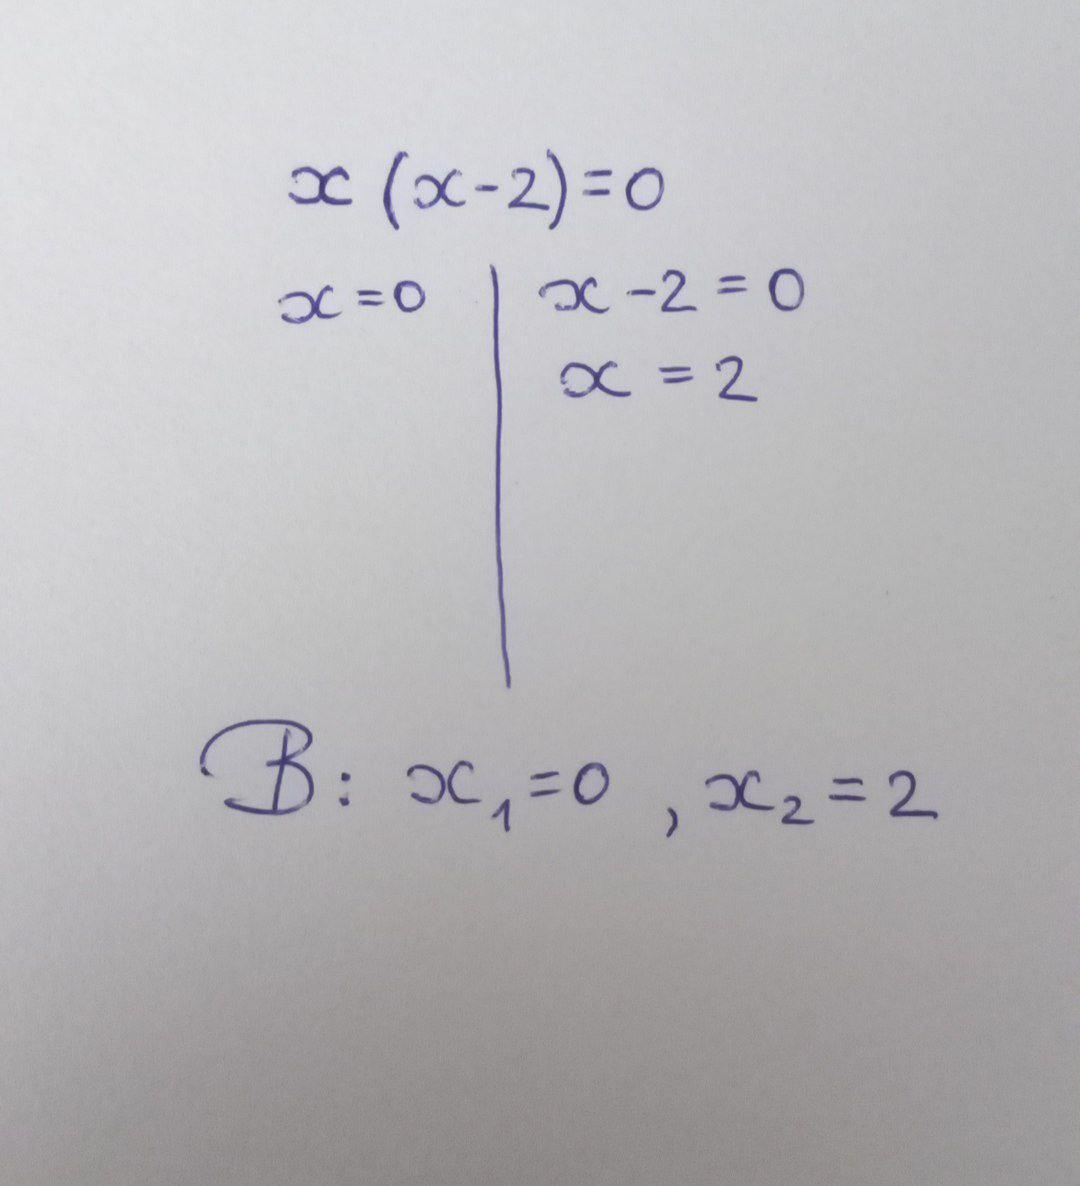 x (x-2)=0
x=0 | x-2=0
x=2
B: x₁=0 , x₂=2